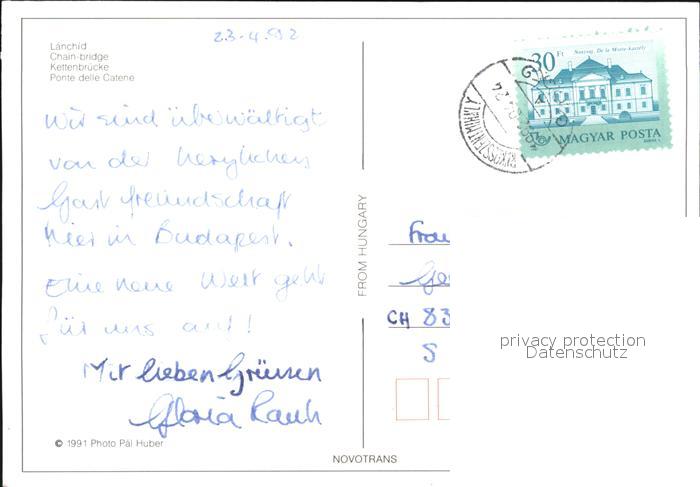 23-4.92
Lánchíd
Chain-bridge
Kettenbrücke
Ponte delle Catene
Wir sind überwältigt
von der herzlichen
Gastfreundschaft
hier in Budapest.
Eine neue Welt geht
für uns auf!
Mit lieben Grüssen
Gloria Rauh
© 1991 Photo Pál Huber
FROM HUNGARY
NOVOTRANS
30 Ft
Noszvaj, De la Motte-kastély
MAGYAR POSTA
RÁKOSSZENTMIHÁLY
Frau
CH 83
S
privacy protection
Datenschutz